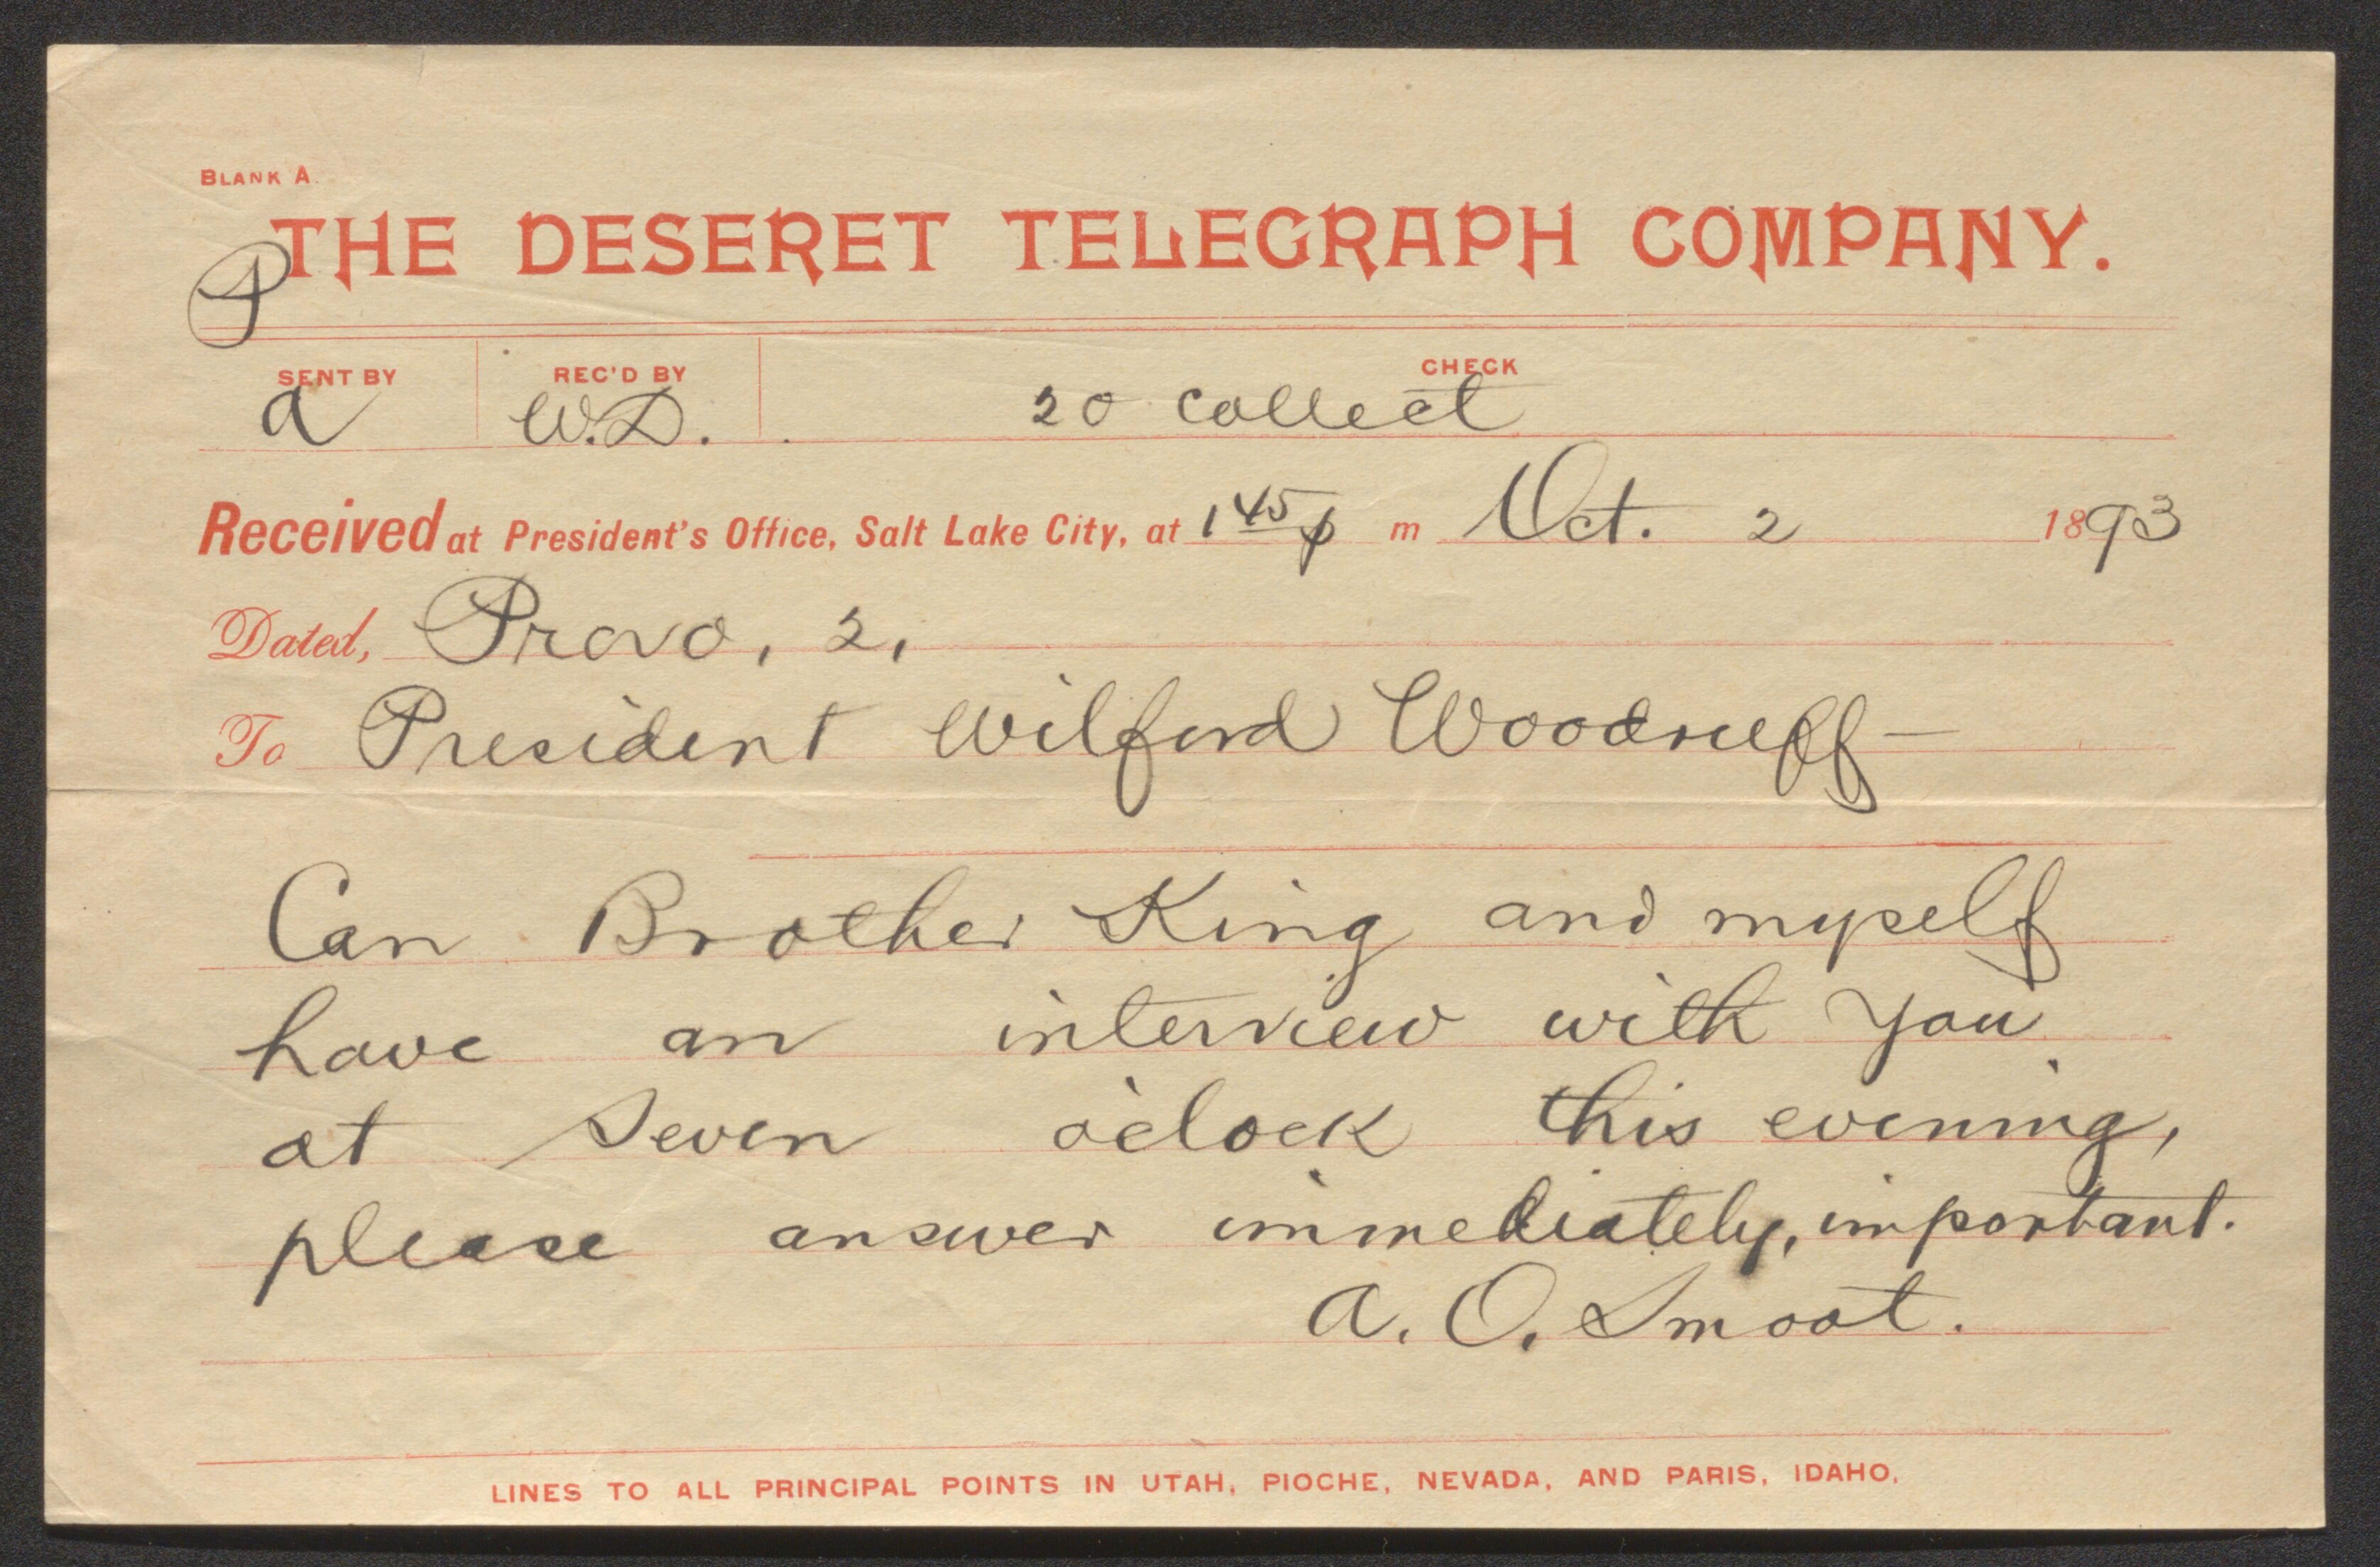 BLANK A.
THE DESERET TELEGRAPH COMPANY.
P
SENT BY REC'D BY CHECK
a W.D. 20 collect
Received at President's Office, Salt Lake City, at 1 45 p m Oct. 2 1893
Dated, Provo, 2,
To President Wilford Woodruff—
Can Brother King and myself
have an interview with you
at Seven o'clock this evening,
please answer immediately, important.
A. O. Smoot.
LINES TO ALL PRINCIPAL POINTS IN UTAH, PIOCHE, NEVADA, AND PARIS, IDAHO.